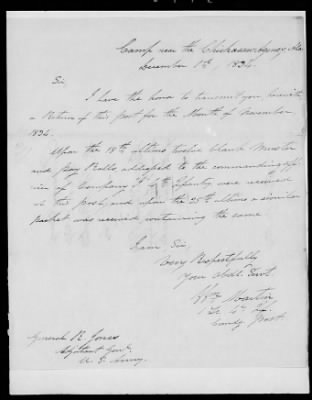 Camp near the Chickasawhogue, Ala
December 1st, 1834.
Sir,
I have the honor to transmit you, herewith
a Return of this post for the Month of November
1834.
Upon the 18th ultimo twelve blank Muster
and Pay Rolls, addressed to the commanding offi-
cer of Company "F" 4th Infantry, were received
at this post, and upon the 25th ultimo a similar
packet was received, containing the same.
I am, Sir,
Very Respectfully
Your Obdt. Servt.
Wm Martin
1 Lt. 4th If.
Comdg Post.
General R. Jones
Adjutant Genl.
U. S. Army.